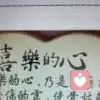 喜樂的心
樂的心,乃是
傷的靈,使骨